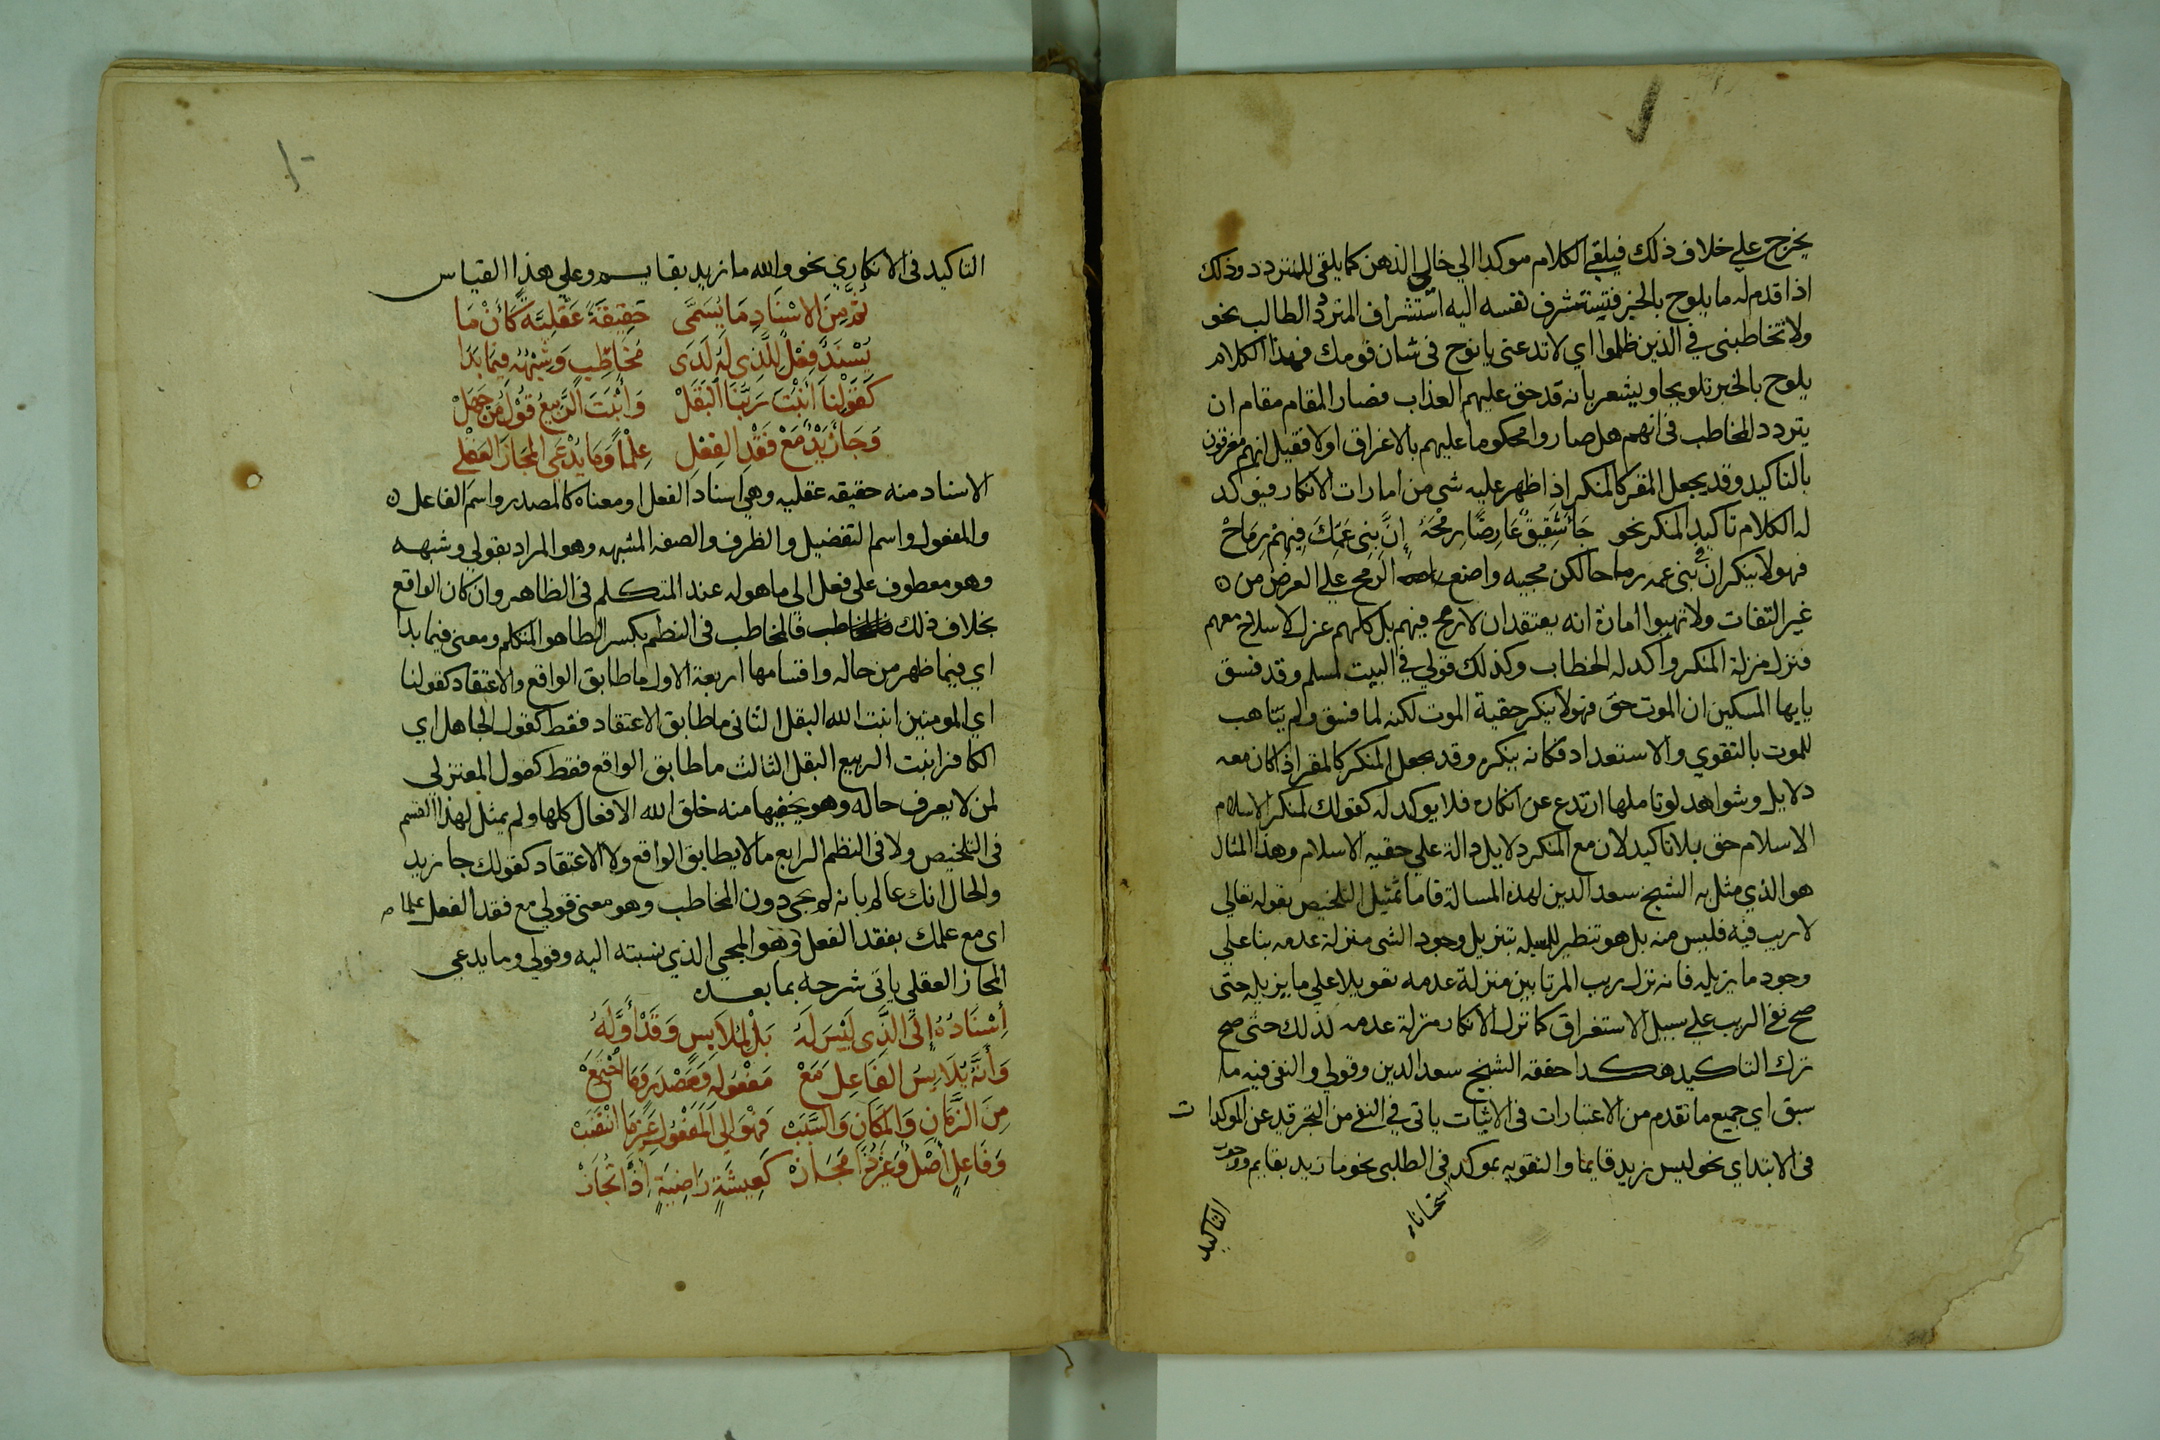 يخرج علي خلاف ذلك فيلقي الكلام موكدا الي خالي الذهن كما يلقى للمتردد وذلك
اذا قدم له ما يلوح بالخبر فتستشرف نفسه اليه استشراف المتردد الطالب نحو
ولا تخاطبني في الذين ظلموا اي لا تدعني يا نوح في شان قومك فهذا الكلام
يلوح بالخبر تلويحا ويشعر بانه قد حق عليهم العذاب فصار المقام مقام ان
يتردد المخاطب في انهم هل صاروا محكوما عليهم بالاغراق او لا فقيل انهم مغرقون
بالتاكيد وقد يجعل المقر كالمنكر اذا ظهر عليه شي من امارات الانكار فيوكد
له الكلام تاكيد المنكر نحو جَاْ شَقِيقٌ عَارِضًا رِمْحَهُ إِنَّ بَنِى عَمِّكَ فِيهِمْ رِمَاحْ
فهو لا ينكر ان في بني عمه رماحا لكن مجيه واضع الرمح علي العرض من
غير التفات ولا تهيوا امارة انه يعتقد ان لا رمح فيهم بل كلهم عزل لا سلاح معهم
فنزل منزلة المنكر واكد له الخطاب وكذلك قولي في البيت لمسلم وقد فسق
يايها المسكين ان الموت حق فهو لا ينكر حقية الموت لكنه لما فسق ولم يتاهب
للموت بالتقوي والاستعداد فكانه ينكره وقد يجعل المنكر كالمقر اذا كان معه
دلايل وشواهد لو تاملها ارتدع عن انكاره فلا يوكد له كقولك لمنكر الاسلام
الاسلام حق بلا تاكيد لان مع المنكر دلايل دالة علي حقيه الاسلام وهذا المثال
هو الذي مثل به الشيخ سعد الدين لهذه المسالة فاما تمثيل التلخيص بقوله تعالي
لا ريب فيه فليس منه بل هو تنظير للمسيله بتنزيل وجود الشى منزلة عدمه بنا علي
وجود ما يزيله فانه نزل ريب المرتابين منزلة عدمه تعويلا علي ما يزيله حتى
صح نفي الريب علي سبيل الاستغراق كما نزل الانكار منزلة عدمه لذلك حتى صح
ترك التاكيد هكذا حققه الشيخ سعد الدين وقولي والنفى فيه ما
سبق اي جميع ما تقدم من الاعتبارات في الاثبات ياتى في النفي من التجريد عن الموكدات
فى الابتداي نحو ليس زيد قايما والتقويه بموكد فى الطلبى نحو ما زيد بقايم ووجوب
استحسانا
التاكيد
التاكيد فى الانكاري نحو والله ما زيد بقايم وعلي هذا القياس
ثُمَّ مِنَ الاسْنَادِ مَا يُسَمَّى حَقِيقَةً عَقْلِيَّةً كَأَنْ مَا
يُسْنَدَ فِعْلٌ لِلَّذِى لَهُ لَدَى مُخَاطِبٍ وَشِبْهُهُ فِيمَا بَدَا
كَقَوْلِنَا أَنْبَتَ رَبُّنَا الْبَقَلْ وَأَنْبَتَ الرَّبِيعُ قَوْلُ مَنْ جَهَلْ
وَجَاْ زَيْدٌ مَعْ فَقْدِ الفِعْلِ عِلْمًا وَمَا يُدْعَى المَجَازَ العَقْلِي
الاسناد منه حقيقه عقليه وهي اسناد الفعل او معناه كالمصدر واسم الفاعل
والمفعول واسم التفضيل والظرف والصفه المشبهه وهو المراد بقولي وشبهه
وهو معطوف على فعل الي ما هو له عند المتكلم فى الظاهر وان كان الواقع
بخلاف ذلك فالمخاطب فى النظم بكسر الطا هو المتكلم ومعنى فيما بدا
اي فيما ظهر من حاله واقسامها اربعة الاول ما طابق الواقع والاعتقاد كقولنا
اي المومنين انبت الله البقل الثانى ما طابق الاعتقاد فقط كقول الجاهل اي
الكافر انبت الربيع البقل الثالث ما طابق الواقع فقط كقول المعتزلى
لمن لا يعرف حاله وهو يخفيها منه خلق الله الافعال كلها ولم يمثل لهذا القسم
فى التلخيص ولا فى النظم الرابع ما لا يطابق الواقع ولا الاعتقاد كقولك جا زيد
والحال انك عالم بانه لم يجي دون المخاطب وهو معنى قولي مع فقد الفعل علما
اى مع علمك بفقد الفعل وهو المجي الذي نسبته اليه وقولي وما يدعي
المجاز العقلي ياتى شرحه بما بعده
أِسْنَادُهُ إِلَى الَّذِى لَيْسَ لَهُ بَلْ لِمُلَابِسٍ وَقَدْ أَوَّلَهُ
وَأَنَّهُ يُلَابِسُ الفَاعِلَ مَعْ مَفْعُولِهِ وَمَصْدَرٍ وَمَا اجْتَمَعْ
مِنَ الزَّمَانِ وَالمَكَانِ وَالسَّبَبْ فَهْوَ إِلي المَفْعُولِ غَيْرَ مَا انْتَصَبْ
وَفَاعِلٍ أَصْلٌ وَغَيْرُ ذَا مَجَازْ كَعِيشَةٍ رَاضِيَةٍ إِذَا تُجَازْ